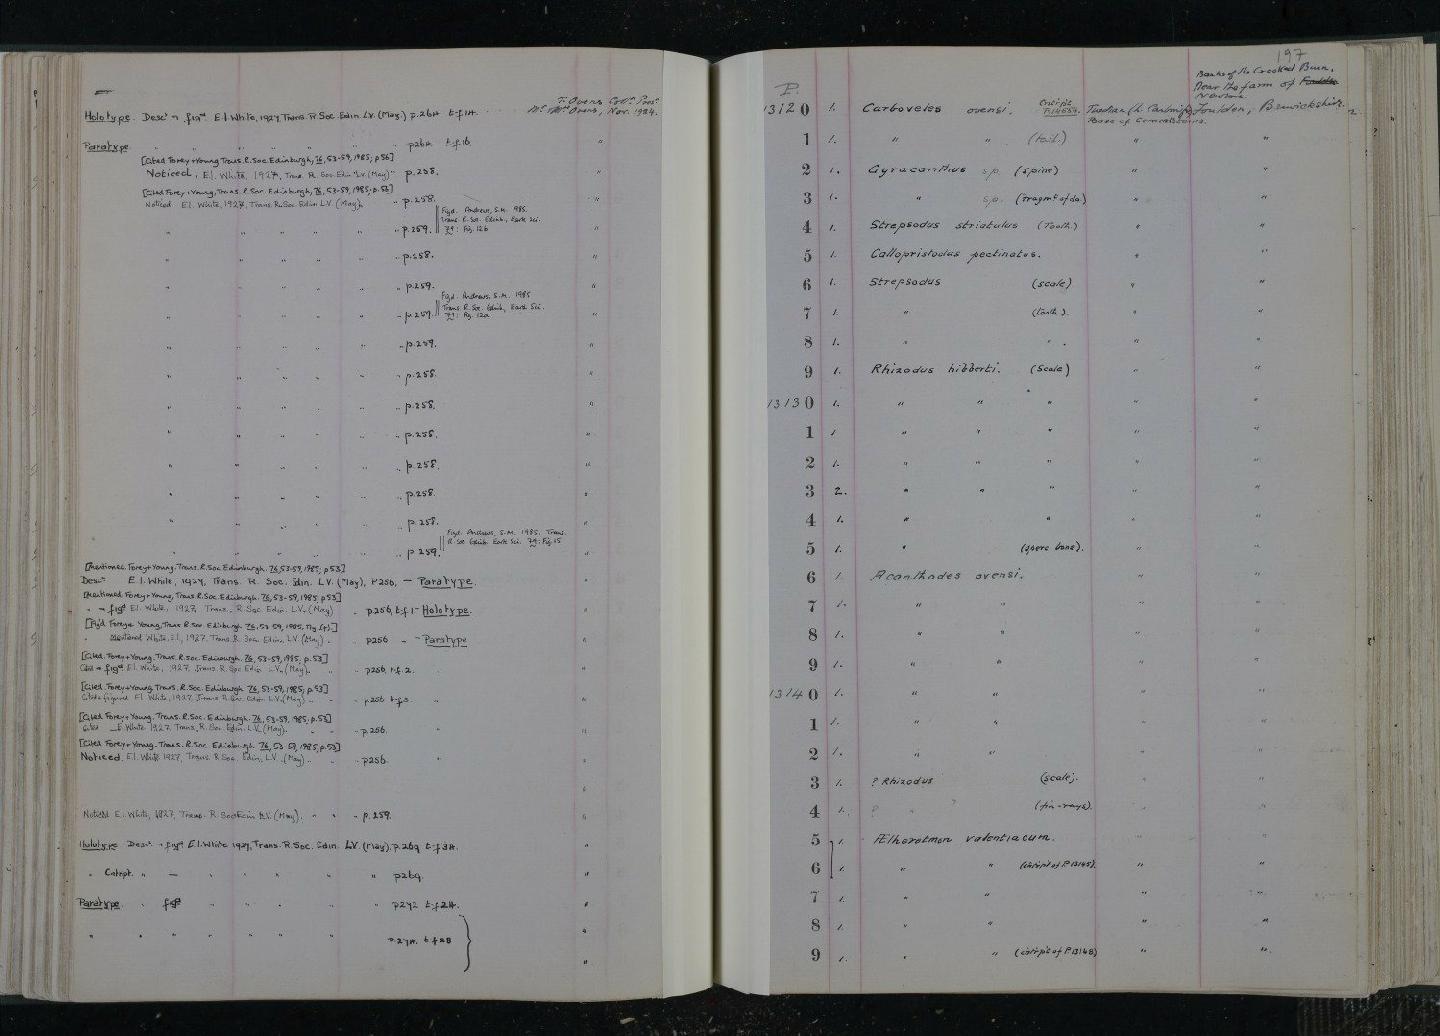 T. Ovens Colln Pres.
Mr. Ovens, Nov. 1924.
Holotype. Descd + figd E.I. White, 1927, Trans. R. Soc. Edin. LV. (May)
Paratype. " " " " " "
[Cited Forey + Young Trans. R. Soc. Edinburgh, 76, 53-59, 1985; p56]
Noticed, E.I. White, 1927, Trans. R. Soc. Edin. LV. (May) p.258. "
[Cited Forey + Young, Trans. R. Soc. Edinburgh, 76, 53-59, 1985; p.56]
Noticed E.I. White, 1927, Trans. R. Soc. Edin LV. (May), " p.258. "
Figd. Andrews, S.M. 1985.
Trans. R. Soc. Edinb., Earth Sci.
" " " " " " p.259. " Fig. 12b
" " " " " " p.258. "
" " " " " " p.259. "
Figd. Andrews, S.M. 1985
Trans. R. Soc. Edinb., Earth Sci.
" " " " " " p.259. Fig. 12a "
" " " " " " p.259. "
" " " " " " p.258. "
" " " " " " p.258. "
" " " " " " p.258. "
" " " " " " p.258. "
" " " " " " p.258. "
" " " " " " p.258. "
Figd. Andrews, S.M. 1985. Trans.
R. Soc. Edinb. Earth Sci. Fig. 15
" " " " " " p.259. "
[Mentioned Forey + Young. Trans. R. Soc Edinburgh. 76, 53-59, 1985; p53]
Descd E.I. White, 1927, Trans. R. Soc. Edin. LV. (May), p256, — Paratype.
[Mentioned Forey + Young, Trans. R. Soc. Edinburgh. 76, 53-59, 1985, p53]
" + figd E.I. White, 1927 Trans. R. Soc. Edin. LV. (May) p256, t.f.1 — Holotype.
[Fig'd Forey + Young, Trans. R. Soc. Edinburgh 76, 53-59, 1985,
" Mentioned White, E.I., 1927. Trans. R. Soc. Edin. LV. (May) " p256 — Paratype
[Cited. Forey + Young. Trans. R. Soc. Edinburgh. 76, 53-59, 1985, p.53]
figd E.I. White, 1927. Trans. R. Soc. Edin. LV. (May). " p256, t.f.2.
[Cited. Forey + Young, Trans. R. Soc. Edinburgh 76, 53-59, 1985; p.53]
Cited + figured E.I. White, 1927. Trans. R. Soc. Edin. LV. (May) " p256 t.f.3. "
[Cited Forey + Young. Trans. R. Soc. Edinburgh. 76, 53-59, 1985, p.53]
Cited E. White 1927. Trans. R. Soc. Edin. LV. (May). " p.256.
[Cited Forey + Young. Trans. R. Soc. Edinburgh. 76, 53-59, 1985, p.53]
Noticed. E.I. White 1927, Trans. R. Soc. Edin. LV. (May) " p256. "
Noticed E.I. White, 1927, Trans. R. Soc. Edin. LV. (May). " " p. 259. "
Holotype Descd + figd E.I. White 1927, Trans. R. Soc. Edin. LV. (May).
" Cntrpt. " — " " " " "
Paratype. figd " " " " "
" " " " " " " }
197
Banks of the Crooked Burn.
Near the farm of Foulden
Newton
P.
13120 1. Carboveles ovensi. Cntrpt. Tuedian (L. Carbonif.) Foulden, Berwickshire.
Base of Cementstones.
1 1. " " (tail.) " "
2 1. Gyracanthus sp. (spine) " "
3 1. " sp. (fragmt of do.) " "
4 1. Strepsodus striatulus (Tooth.) " "
5 1. Callopristodus pectinatus. " "
6 1. Strepsodus (scale) " "
7 1. " (tooth.) " "
8 1. " " " "
9 1. Rhizodus hibberti. (Scale) " "
13130 1. " " " " "
1 1 " " " " "
2 1. " " " " "
3 2. " " " " "
4 1. " " " "
5 1. " (operc bone). " "
6 1. Acanthodes ovensi. " "
7 1. " " " "
8 1. " " " "
9 1. " " " "
13140 1. " " " "
1 1. " " " "
2 1. " " " "
3 1. ? Rhizodus (scale). " "
4 1. ? " ? (fin-rays). " "
5 1. Ætheretmon valentiacum. " "
6 1. " " (cntrpt of P13145). " "
7 " " " "
8 " " " "
9 1. " " (cntrpt of P13148) " "